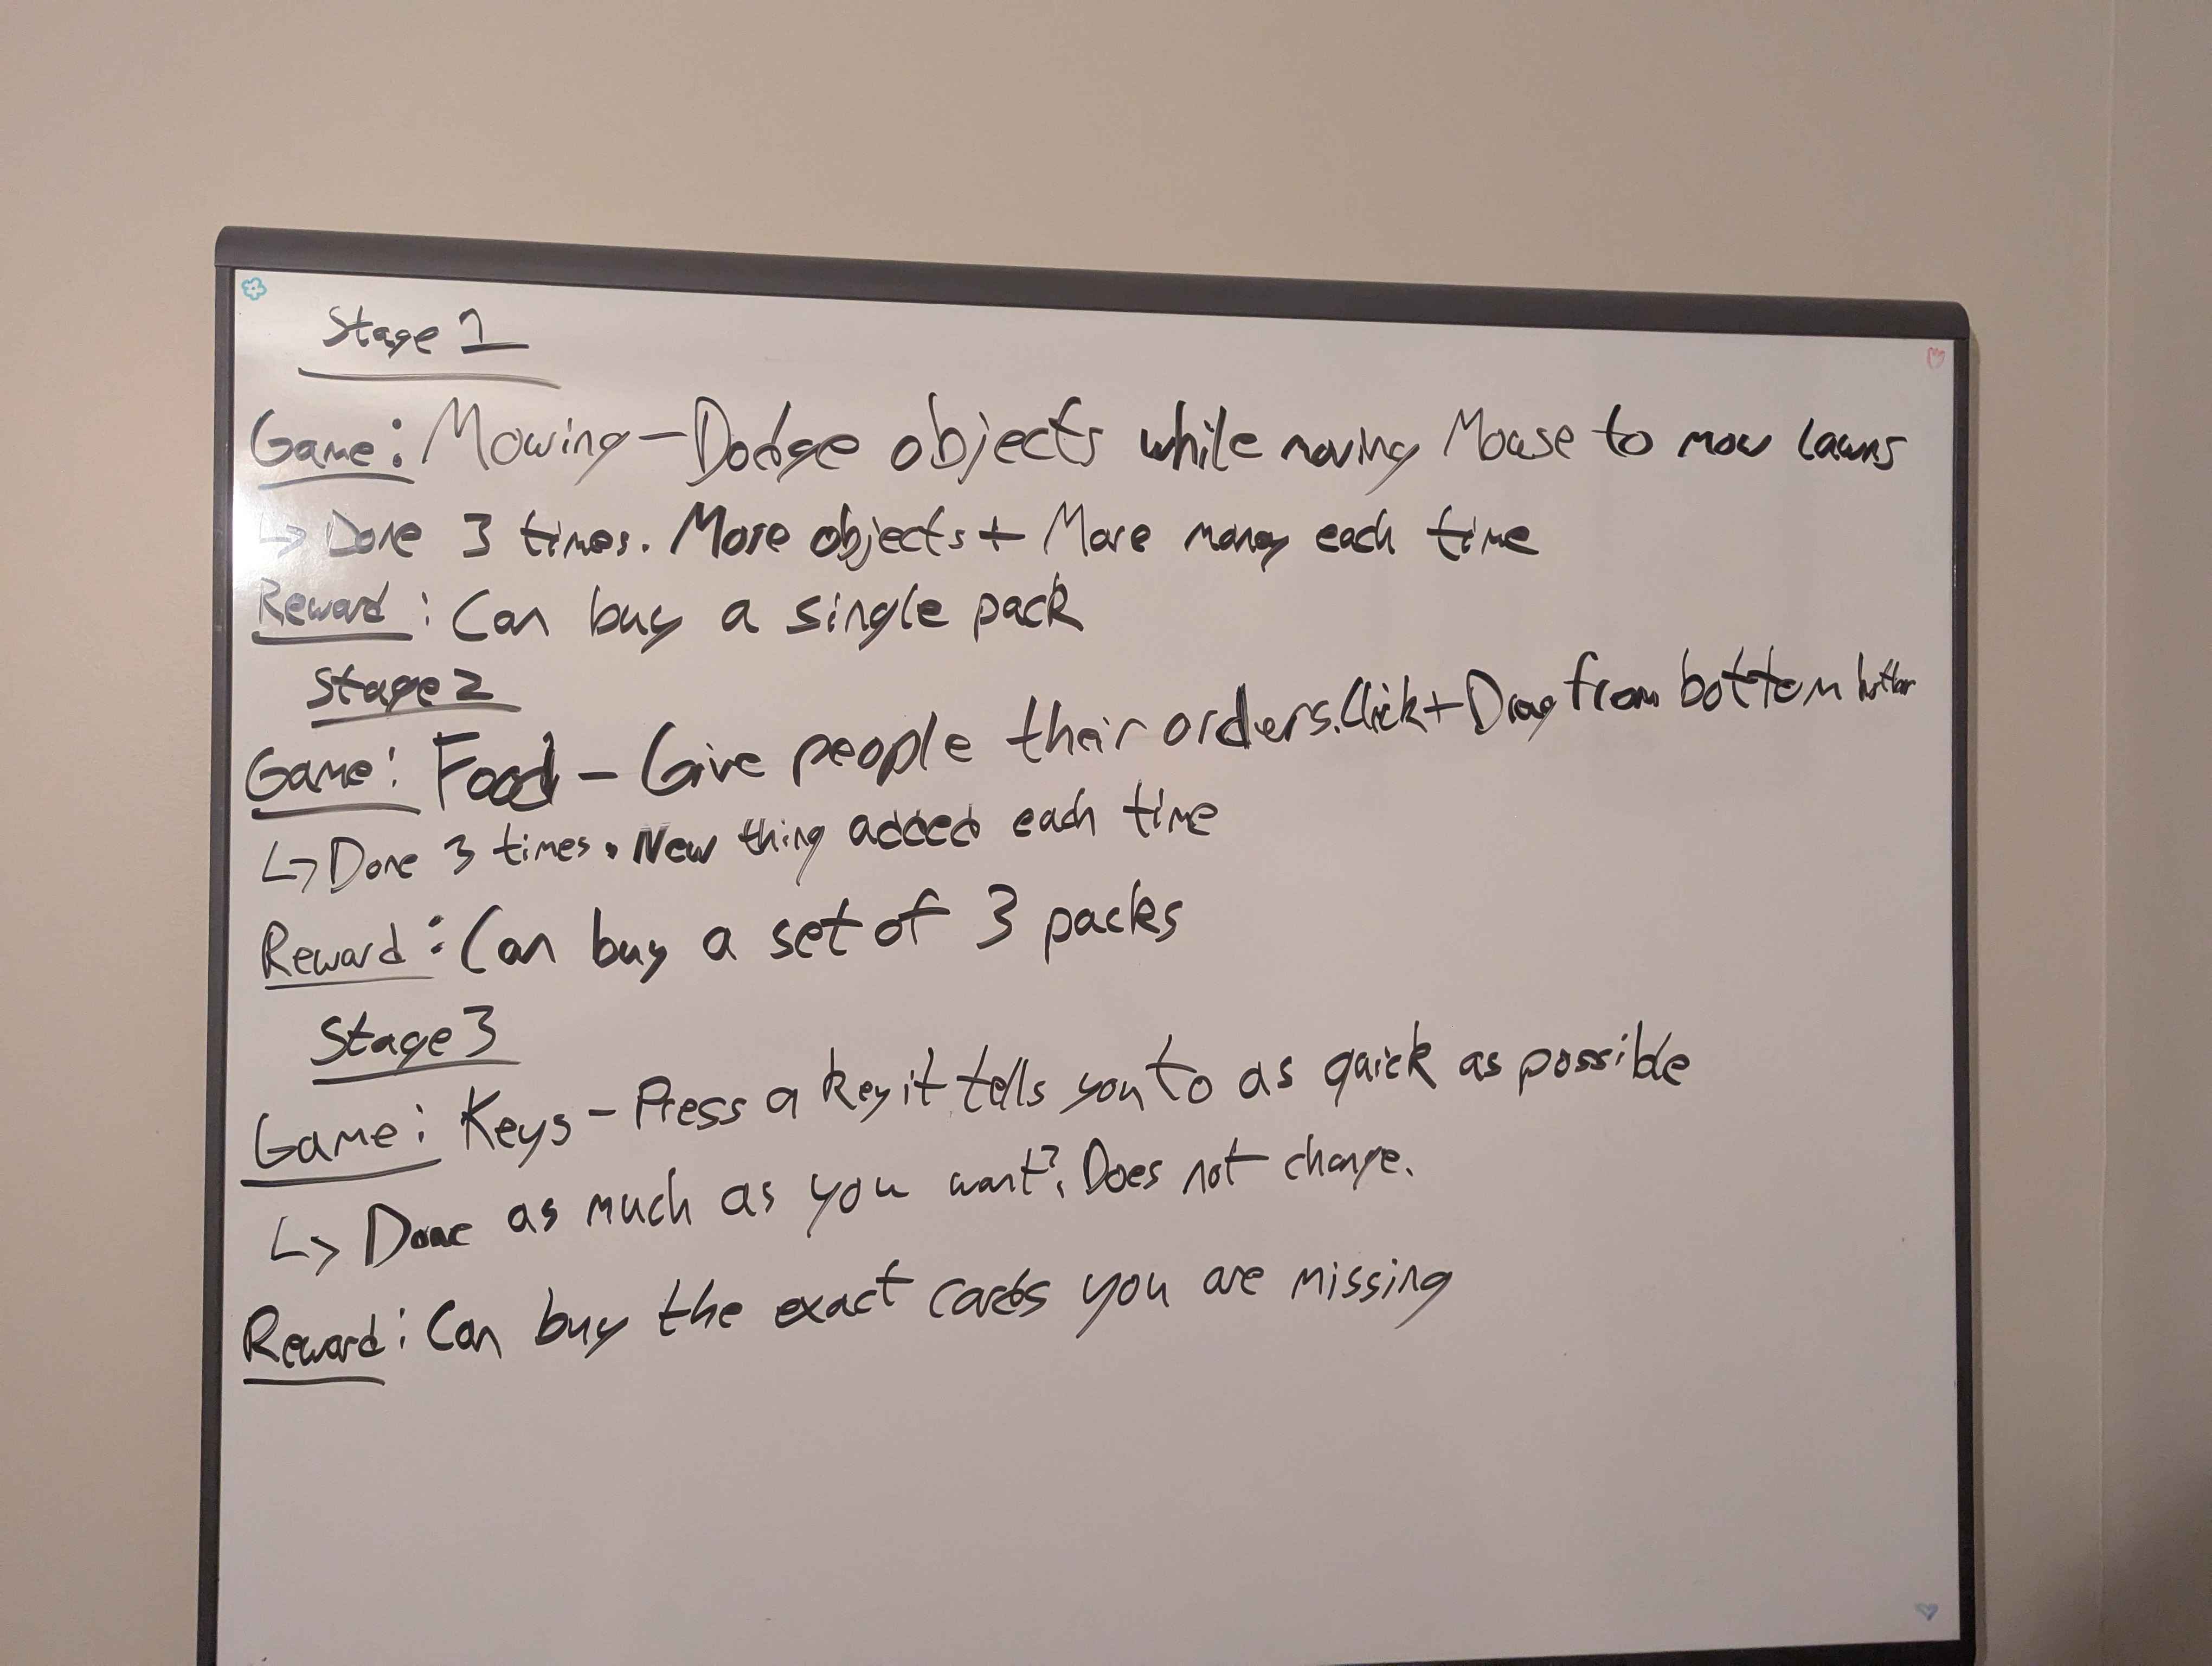 Stage 1
Game: Mowing - Dodge objects while moving Mouse to mow lawns
↳ Done 3 times. More objects + More money each time
Reward: Can buy a single pack
Stage 2
Game: Food - Give people their orders. Click + Drag from bottom
↳ Done 3 times. New thing added each time
Reward: Can buy a set of 3 packs
Stage 3
Game: Keys - Press a key it tells you to as quick as possible
↳ Done as much as you want?. Does not change.
Reward: Can buy the exact cards you are missing